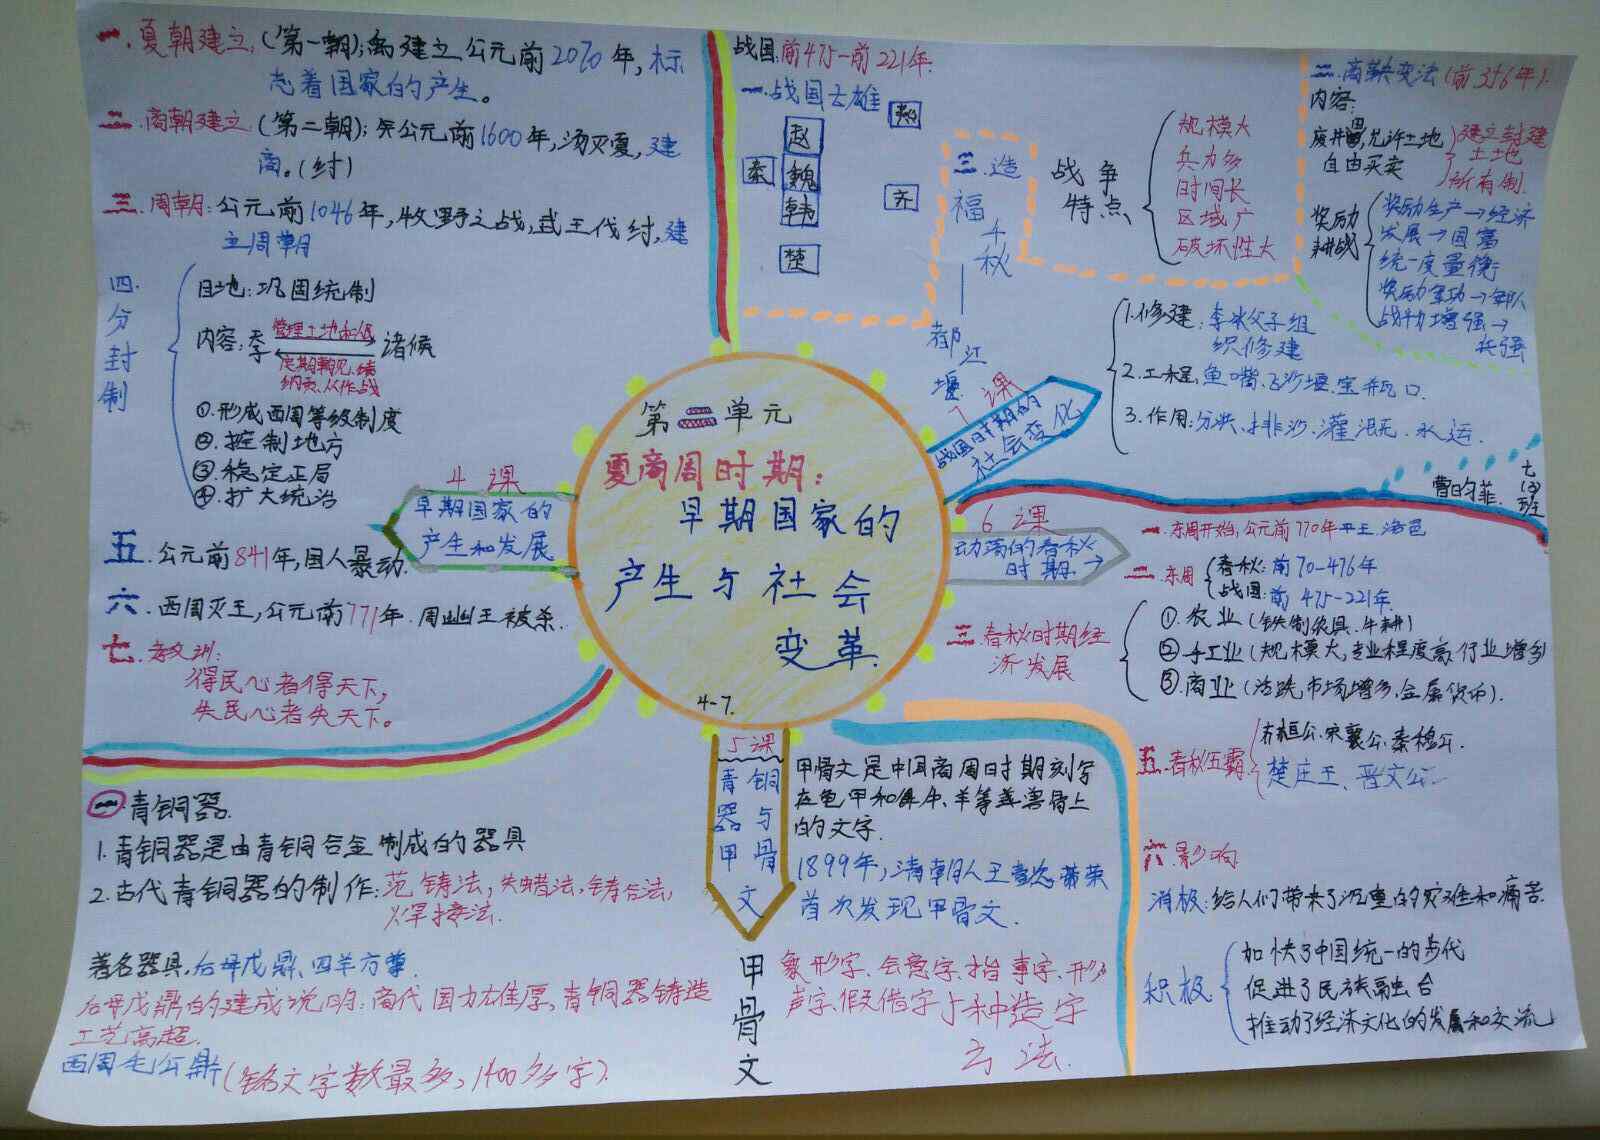 一、夏朝建立:(第一朝);禹建立公元前2070年,标
志着国家的产生。
二、商朝建立(第二朝);公元前1600年,汤灭夏,建
商。(纣)
三、周朝:公元前1046年,牧野之战,武王伐纣,建
立周朝
四.分封制
目地:巩固统制
内容:
管理土地和
诸候
纳贡、从作战
①形成西周等级制度
②控制地方
③稳定正局
④扩大统治
五.公元前841年,国人暴动.
六、西周灭王,公元前771年.周幽王被杀.
七.教训:
得民心者得天下,
失民心者失天下。
4课
早期国家的
产生和发展
第二单元
夏商周时期:
早期国家的
产生与社会
变革.
4-7.
战国:前475-前221年.
一.战国七雄
赵
燕
秦
魏
齐
韩
楚
三.造福千秋——都江堰
战争
特点
规模大
兵力多
时间长
区域广
破坏性大
二.商鞅变法(前356年).
内容:
废井田,允许土地
自由买卖
建立封建
土地
所有制.
奖励
耕战
奖励生产→经济
发展→国富
统一度量衡
奖励军功→军队
战力增强→
兵强
1.修建:李冰父子组
织修建
2.工程:鱼嘴、飞沙堰、宝瓶口.
3.作用:分洪、排沙、灌溉、水运.
7课
战国时期的
社会变化
曹昀菲.
6课
动荡的春秋
时期.→
一.东周开始,公元前770年平王 洛邑
二.东周
春秋:前70-476年
战国:前475-221年.
三.春秋时期经
济发展
①.农业(铁制农具.牛耕)
②手工业(规模大,专业程度高,行业增多
③.商业(活跃,市场增多,金属货币).
五.春秋五霸
齐桓公.宋襄公.秦穆公.
楚庄王、晋文公
六.影响
消极:给人们带来了沉重的灾难和痛苦.
积极
加快了中国统一的步代
促进了民族融合
推动了经济文化的发展和交流
5课
青铜
器与
甲骨
文
甲骨文是中国商周时期刻字
在龟甲和牛、羊等兽骨上
的文字.
1899年,清朝人王懿荣
首次发现甲骨文.
甲骨文
象形字、会意字、指事字、形
声字、假借字5种造字
方法.
一青铜器.
1.青铜器是由青铜合金制成的器具
2.古代青铜器的制作:范铸法,失蜡法,铸合法,
焊接法.
著名器具.后母戊鼎、四羊方尊.
后母戊鼎的建成说明:商代国力雄厚,青铜器铸造
工艺高超.
西周毛公鼎(铭文字数最多,1400多字).